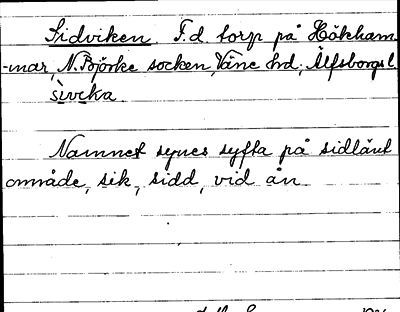 Sidviken. F.d. torp på Hökham-
-mar, N. Björke socken, Väne hd, Älfsborgs l.
sivika.
Namnet synes syfta på sidlänt
område, sik, sidd, vid ån